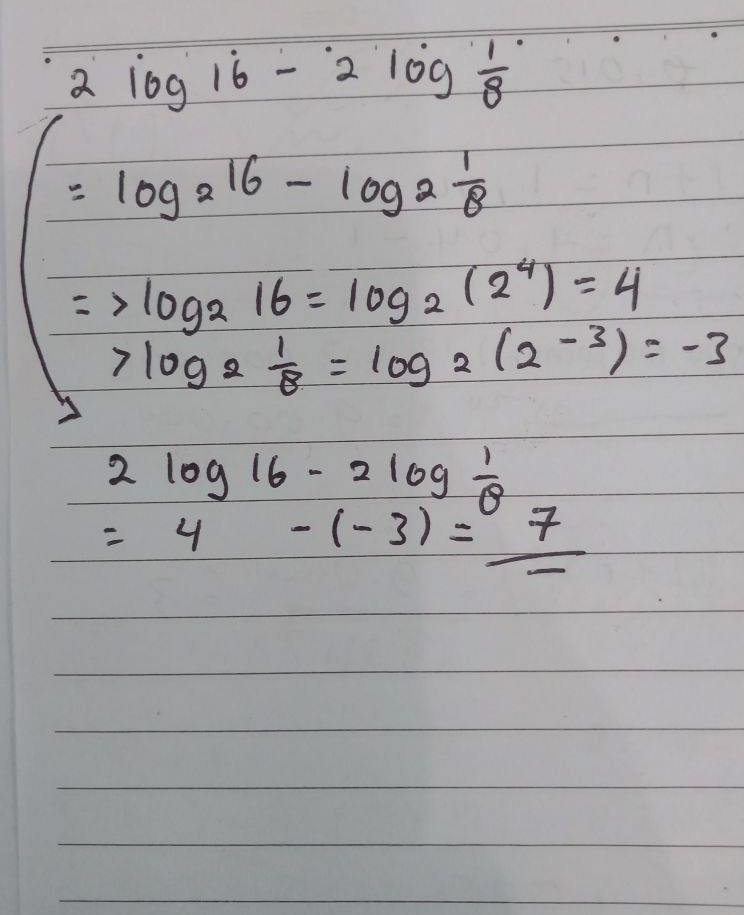 2 log 16 - 2 log 1/8
= log₂ 16 - log₂ 1/8
=> log₂ 16 = log₂ (2⁴) = 4
> log₂ 1/8 = log₂ (2⁻³) = -3
2 log 16 - 2 log 1/8
= 4 - (-3) = 7